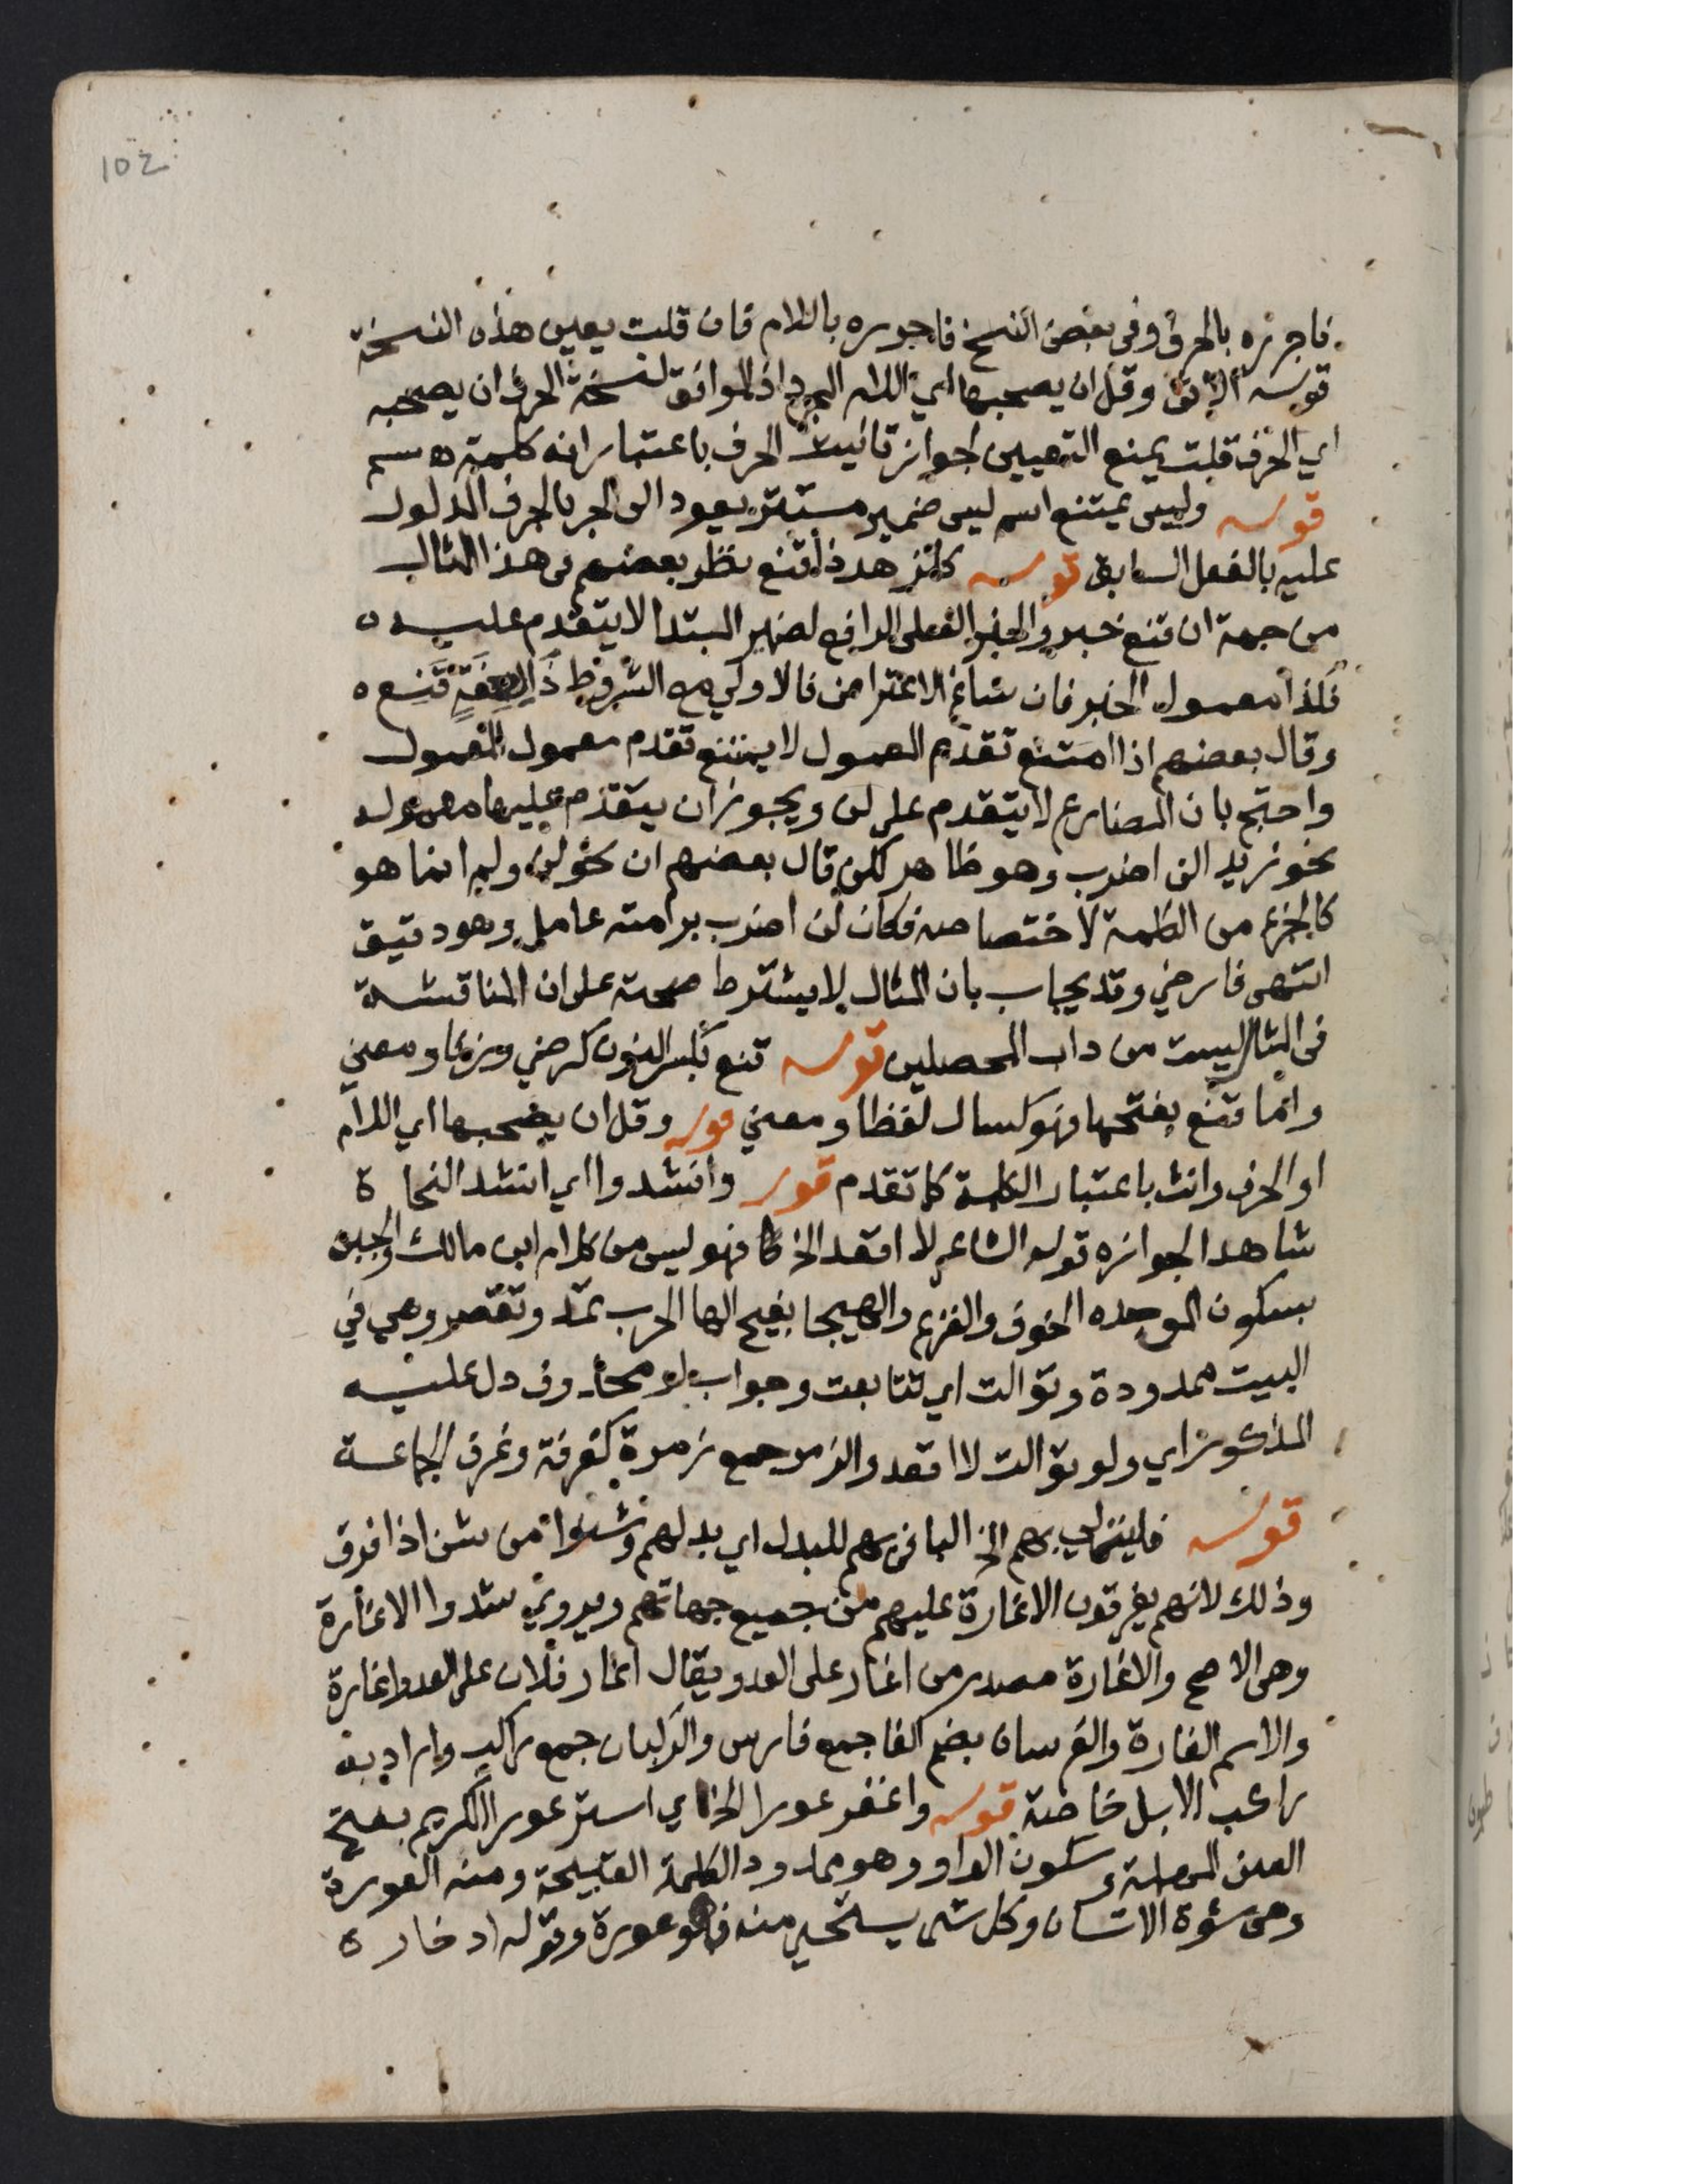 102
فاجرره بالحرف وفى بعض النسخ فاجرره باللام فان قلت يعين هذه النسخة
قوله الاتى وقل ان يصحبها اي اللام المجرد اذ الموافق لنسخة الحرف ان يصحبه
اي الحرف قلت يمنع التعيين جواز تانيث الحرف باعتبار انه كلمة
قوله وليس يمتنع اسم ليس ضمير مستتر يعود الى الجر بالحرف المدلول
عليه بالفعل السابق قوله كلنزهد ذا قنع نظر بعضهم فى هذا المثال
من جهة ان قنع خبر والخبر الفعلى الرافع لضمير المبتدا لا يتقدم عليه
فلذا معمول الخبر فان شاغ الاعتراض فالاولى من الشروط ذا لصفة قنع
وقال بعضهم اذا امتنع تقدم المعمول لا يمتنع تقدم معمول المعمول
واحتج بان المضارع لا يتقدم على لن ويجوز ان يتقدم عليها معموله
نحو زيد الن اضرب وهو ظاهر لكن قال بعضهم ان نحو لن ولم انما هو
كالجزء من الكلمة لاختصاصه فكان لن اضرب برامته عامل وهو دقيق
انتهى فارضي وقد يجاب بان المثال لا يشترط صحته على ان المناقشة
فى المثال ليست من داب المحصلين قوله قنع بكسر النون كرضي وزنا ومعنى
واما قنع بفتحها فهو كسال لفظا ومعني قوله وقل ان يصحبها اي اللام
او الحرف وانث باعتبار الكلمة كما تقدم قوله وانشدوا اي انشد النحاة
شاهدا لجوازه قول الشاعر لا اقعد الخ فهو ليس من كلام ابن مالك والجبن
بسكون الموحده الخوف والفزع والهيجا بفتح الها الحرب تمد وتقصر وهي في
البيت ممدودة وتوالت اي تتابعت وجواب لو محذوف دل عليه
المذكور اي ولو توالت لا اقعد والزمر جمع زمرة كغرفة وغرف الجماعة
قوله فليتلي بهم الخ البا فى بهم للبدل اي بدلهم وشنوا من شن اذا فرق
وذلك لانهم يفرقون الاغارة عليهم من جميع جهاتهم ويروي شدوا الاغارة
وهى الاصح والاغارة مصدر من اغار على العدو يقال اغار فلان على العدو اغارة
والاسم الغارة والفرسان بضم الفا جمع فارس والركبان جمع راكب واراد به
راكب الابل خاصة قوله واغفر عورا الخ اي استر عورا الكريم بفتح
العين المهملة وسكون الواو وهو ممدود الكلمة القبيحة ومنه العورة
وهى سوّة الانسان وكل شى يستحي منه فهو عورة وقوله ادخاره